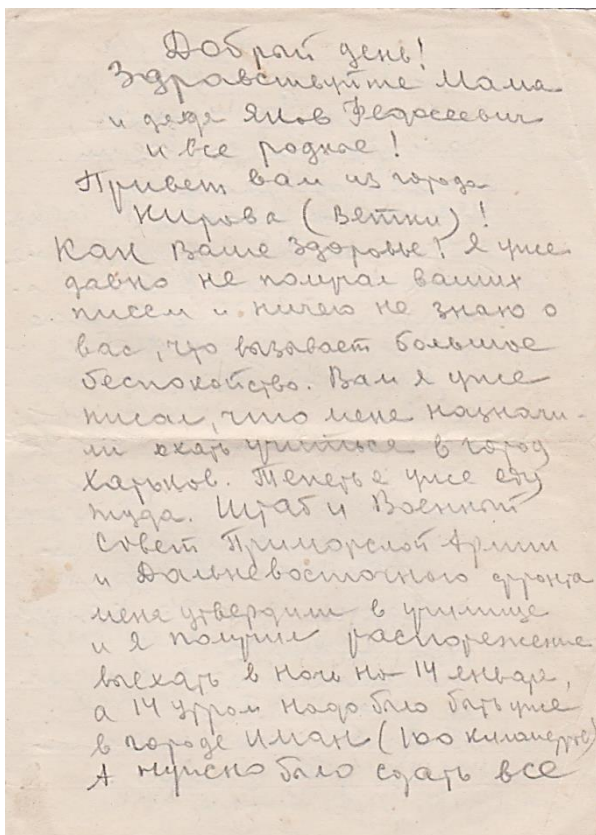 Добрый день!
Здравствуйте Мама
и дядя Яков Федосеевич
и все родные!
Привет вам из города
Кирова (Вятки)!
Как Ваше здоровье! Я уже
давно не получал ваших
писем и ничего не знаю о
вас, что вызывает большое
беспокойство. Вам я уже
писал, что меня назначи-
ли ехать учиться в город
Харьков. Теперь я уже еду
туда. Штаб и Военный
Совет Приморской Армии
и Дальневосточного фронта
меня утвердили в училище
и я получил распоряжение
выехать в ночь на 14 января,
а 14 утром надо было быть уже
в городе Иман (100 километров)
А нужно было сдать все